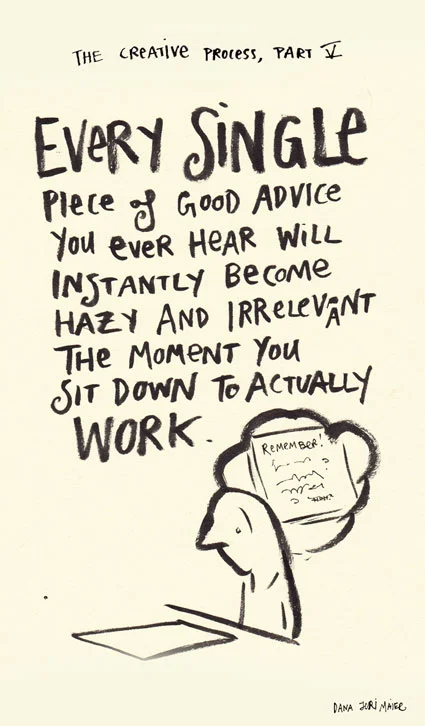 THE CREATIVE PROCESS, PART V
EVERY SINGLE
PIECE of GOOD ADVICE
YOU EVER HEAR WILL
INSTANTLY BECOME
HAZY AND IRRELEVANT
THE MOMENT YOU
SIT DOWN TO ACTUALLY
WORK.
REMEMBER!
DANA JERI MAIER